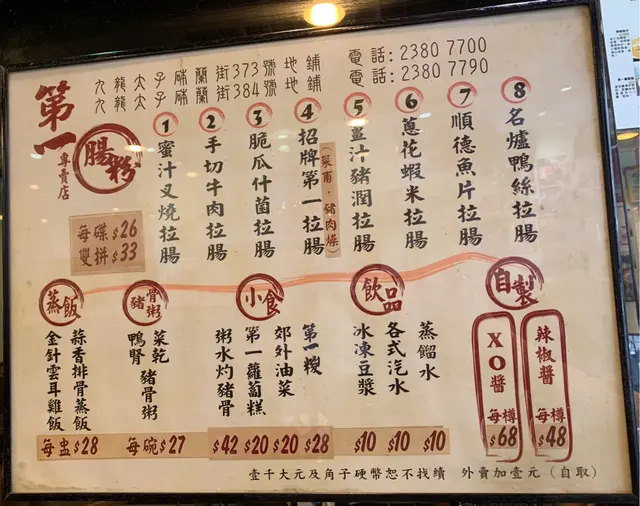 九龍太子砵蘭街373號地鋪
九龍太子砵蘭街384號地鋪
電話:2380 7700
電話:2380 7790
第一
腸粉
專賣店
每碟$26
雙拼$33
1 蜜汁叉燒拉腸
2 手切牛肉拉腸
3 脆瓜什菌拉腸
4 招牌第一拉腸
(菜甫·豬肉燥)
5 薑汁豬潤拉腸
6 蔥花蝦米拉腸
7 順德魚片拉腸
8 名爐鴨絲拉腸
蒸飯
蒜香排骨蒸飯
金針雲耳雞飯
每盅$28
豬骨粥
菜乾 豬骨粥
鴨腎
每碗$27
小食
第一糉
$28
郊外油菜
$20
第一蘿蔔糕
$20
粥水灼豬骨
$42
飲品
蒸餾水
$10
各式汽水
$10
冰凍豆漿
$10
自製
辣椒醬 每樽$48
XO醬 每樽$68
壹千大元及角子硬幣恕不找續 外賣加壹元(自取)